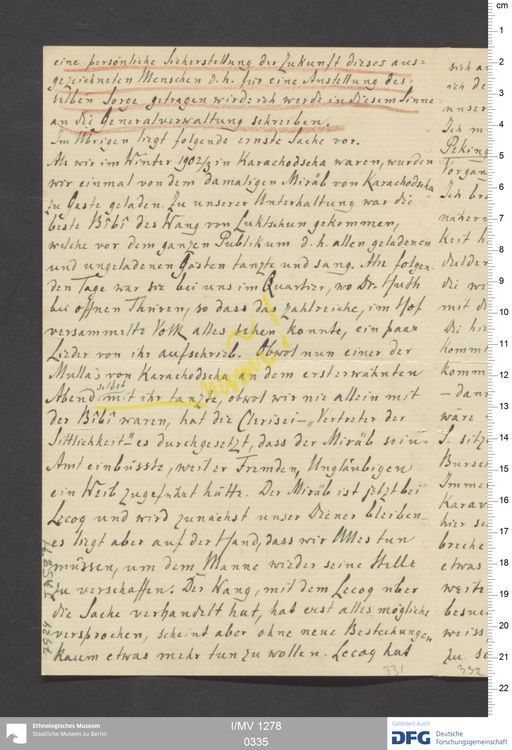 eine persönliche Sicherstellung der Zukunft dieses aus=
gezeichneten Menschen d. h. für eine Anstellung des=
selben Sorge getragen wird. ich werde in diesem Sinne
an die Generalverwaltung schreiben.
Im Übrigen liegt folgende ernste Sache vor.
Als wir im Winter 1902/3 in Karachodscha waren, wurden
wir einmal von dem damaligen Mirāb von Karachodscha
zu Gaste geladen. Zu unserer Unterhaltung war die
beste Bîbî des Wang von Luktschun gekommen,
welche vor dem ganzen Publikum d. h. allen geladenen
und ungeladenen Gästen tanzte und sang. Am folgen-
den Tage war sie bei uns im Quartier, wo Dr. Huth
bei offnen Thüren, so dass das zahlreiche, im Hof
versammelte Volk alles sehen konnte, ein paar
Lieder von ihr aufschrieb. Obwol nun einer der
Mullas von Karachodscha an dem ersterwähnten
Abend selbst mit ihr tanzte, obwol wir nie allein mit
der Bîbî waren, hat die Clerisei – „Vertreter der
Sittlichkeit" – es durchgesetzt, dass der Mirāb sein
Amt einbüsste, weil er Fremden, Ungläubigen
ein Weib zugeführt hätte. Der Mirāb ist jetzt bei
Lecoq und wird zunächst unser Diener bleiben
es liegt aber auf der Hand, dass wir Alles tun
müssen, um dem Manne wieder seine Stelle
zu verschaffen. Der Wang, mit dem Lecoq über
die Sache verhandelt hat, hat erst alles mögliche
versprochen, scheint aber ohne neue Bestechungen
kaum etwas mehr tun zu wollen. Lecoq hat
331
sich a
ich de
unser
Ich m
Peking
Turgan
Ich bre
nähern
keit h
die wi
mit d
Di hie
kommt
komm
– dan
wäre
S. sitz
Burser
Immer
Karav
hier se
breche
etwas
weite
besuc
weiss
zu so
332
cm
1
2
3
4
5
6
7
8
9
10
11
12
13
14
15
16
17
18
19
20
21
22
Ethnologisches Museum
Staatliche Museen zu Berlin
I/MV 1278
0335
Gefördert durch
DFG Deutsche
Forschungsgemeinschaft